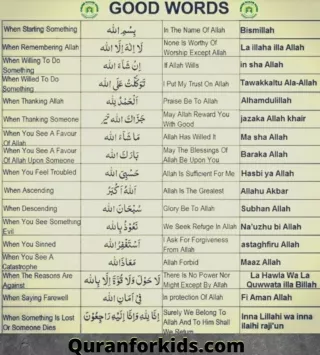 GOOD WORDS
When Starting Something بِسْمِ اللّٰه In The Name Of Allah Bismillah
When Remembering Allah لَا إِلٰهَ إِلَّا اللّٰه None Is Worthy Of Worship Except Allah La illaha illa Allah
When Willing To Do Something إِنْ شَاءَ اللّٰه If Allah Wills in sha Allah
When Willed To Do Something تَوَكَّلْتُ عَلَى اللّٰه I Put My Trust On Allah Tawakkaltu Ala-Allah
When Thanking Allah اَلْحَمْدُ لِلّٰه Praise Be To Allah Alhamdulillah
When Thanking Someone جَزَاكَ اللّٰه خَيْر May Allah Reward You With Good jazaka Allah khair
When You See A Favour Of Allah مَا شَاءَ اللّٰه Allah Has Willed It Ma sha Allah
When You See A Favour Of Allah Upon Someone بَارَكَ اللّٰه May The Blessings Of Allah Be Upon You Baraka Allah
When You Feel Troubled حَسْبِيَ اللّٰه Allah Is Sufficient For Me Hasbi ya Allah
When Ascending اَللّٰهُ أَكْبَر Allah Is The Greatest Allahu Akbar
When Descending سُبْحَانَ اللّٰه Glory Be To Allah Subhan Allah
When You See Something Evil نَعُوْذُ بِاللّٰه We Seek Refuge In Allah Na'uzhu bi Allah
When You Sinned أَسْتَغْفِرُ اللّٰه I Ask For Forgiveness From Allah astaghfiru Allah
When You See A Catastrophe مَعَاذَ اللّٰه Allah Forbid Maaz Allah
When The Reasons Are Against لَا حَوْلَ وَلَا قُوَّةَ إِلَّا بِاللّٰه There Is No Power Nor Might Except By Allah La Hawla Wa La Quwwata illa Billah
When Saying Farewell فِيْ أَمَانِ اللّٰه In protection Of Allah Fi Aman Allah
When Something Is Lost Or Someone Dies إِنَّا لِلّٰهِ وَإِنَّا إِلَيْهِ رَاجِعُوْنَ Surely We Belong To Allah And To Him Shall We Return Inna Lillahi wa inna ilaihi raji'un
Quranforkids.com